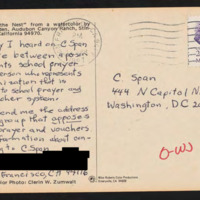 the Nest" from a watercolor by
den, Audubon Canyon Ranch, Stin-
California 94970.
y I heard on C Span
te between a person
nts school prayer
person who represents
ni zation that is
to school prayer and
ucher system.
end me the address
group that opposes
rayer and vouchers.
formation about con-
to C Span
Francisco, CA 94116
lor Photo: Clerin W. Zumwalt
Mike Roberts Color Productions
Emeryville, CA 94608
C. Span
444 N Capitol N
Washington, D.C 20